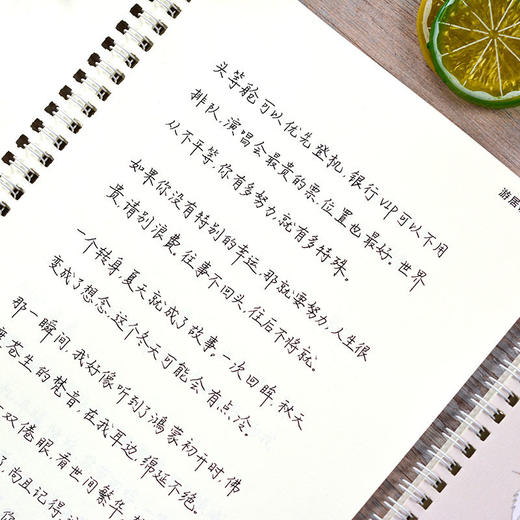 头等舱可以优先登机，银行VIP可以不用
排队，演唱会最贵的票，位置也最好。世界
从不平等，你有多努力，就有多特殊。
如果你没有特别的幸运，那就要努力，人生很
贵，请别浪费。往事不回头，往后不将就。
一个转身，夏天就成了故事。一次回眸，秋天
变成了想念，这个冬天可能会有点冷。
那一瞬间，我好像听到了鸿蒙初开时，佛
苍生的梵音，在我耳边，绵延不绝。
双倦眼，看世间繁华，
尚且记得
游居